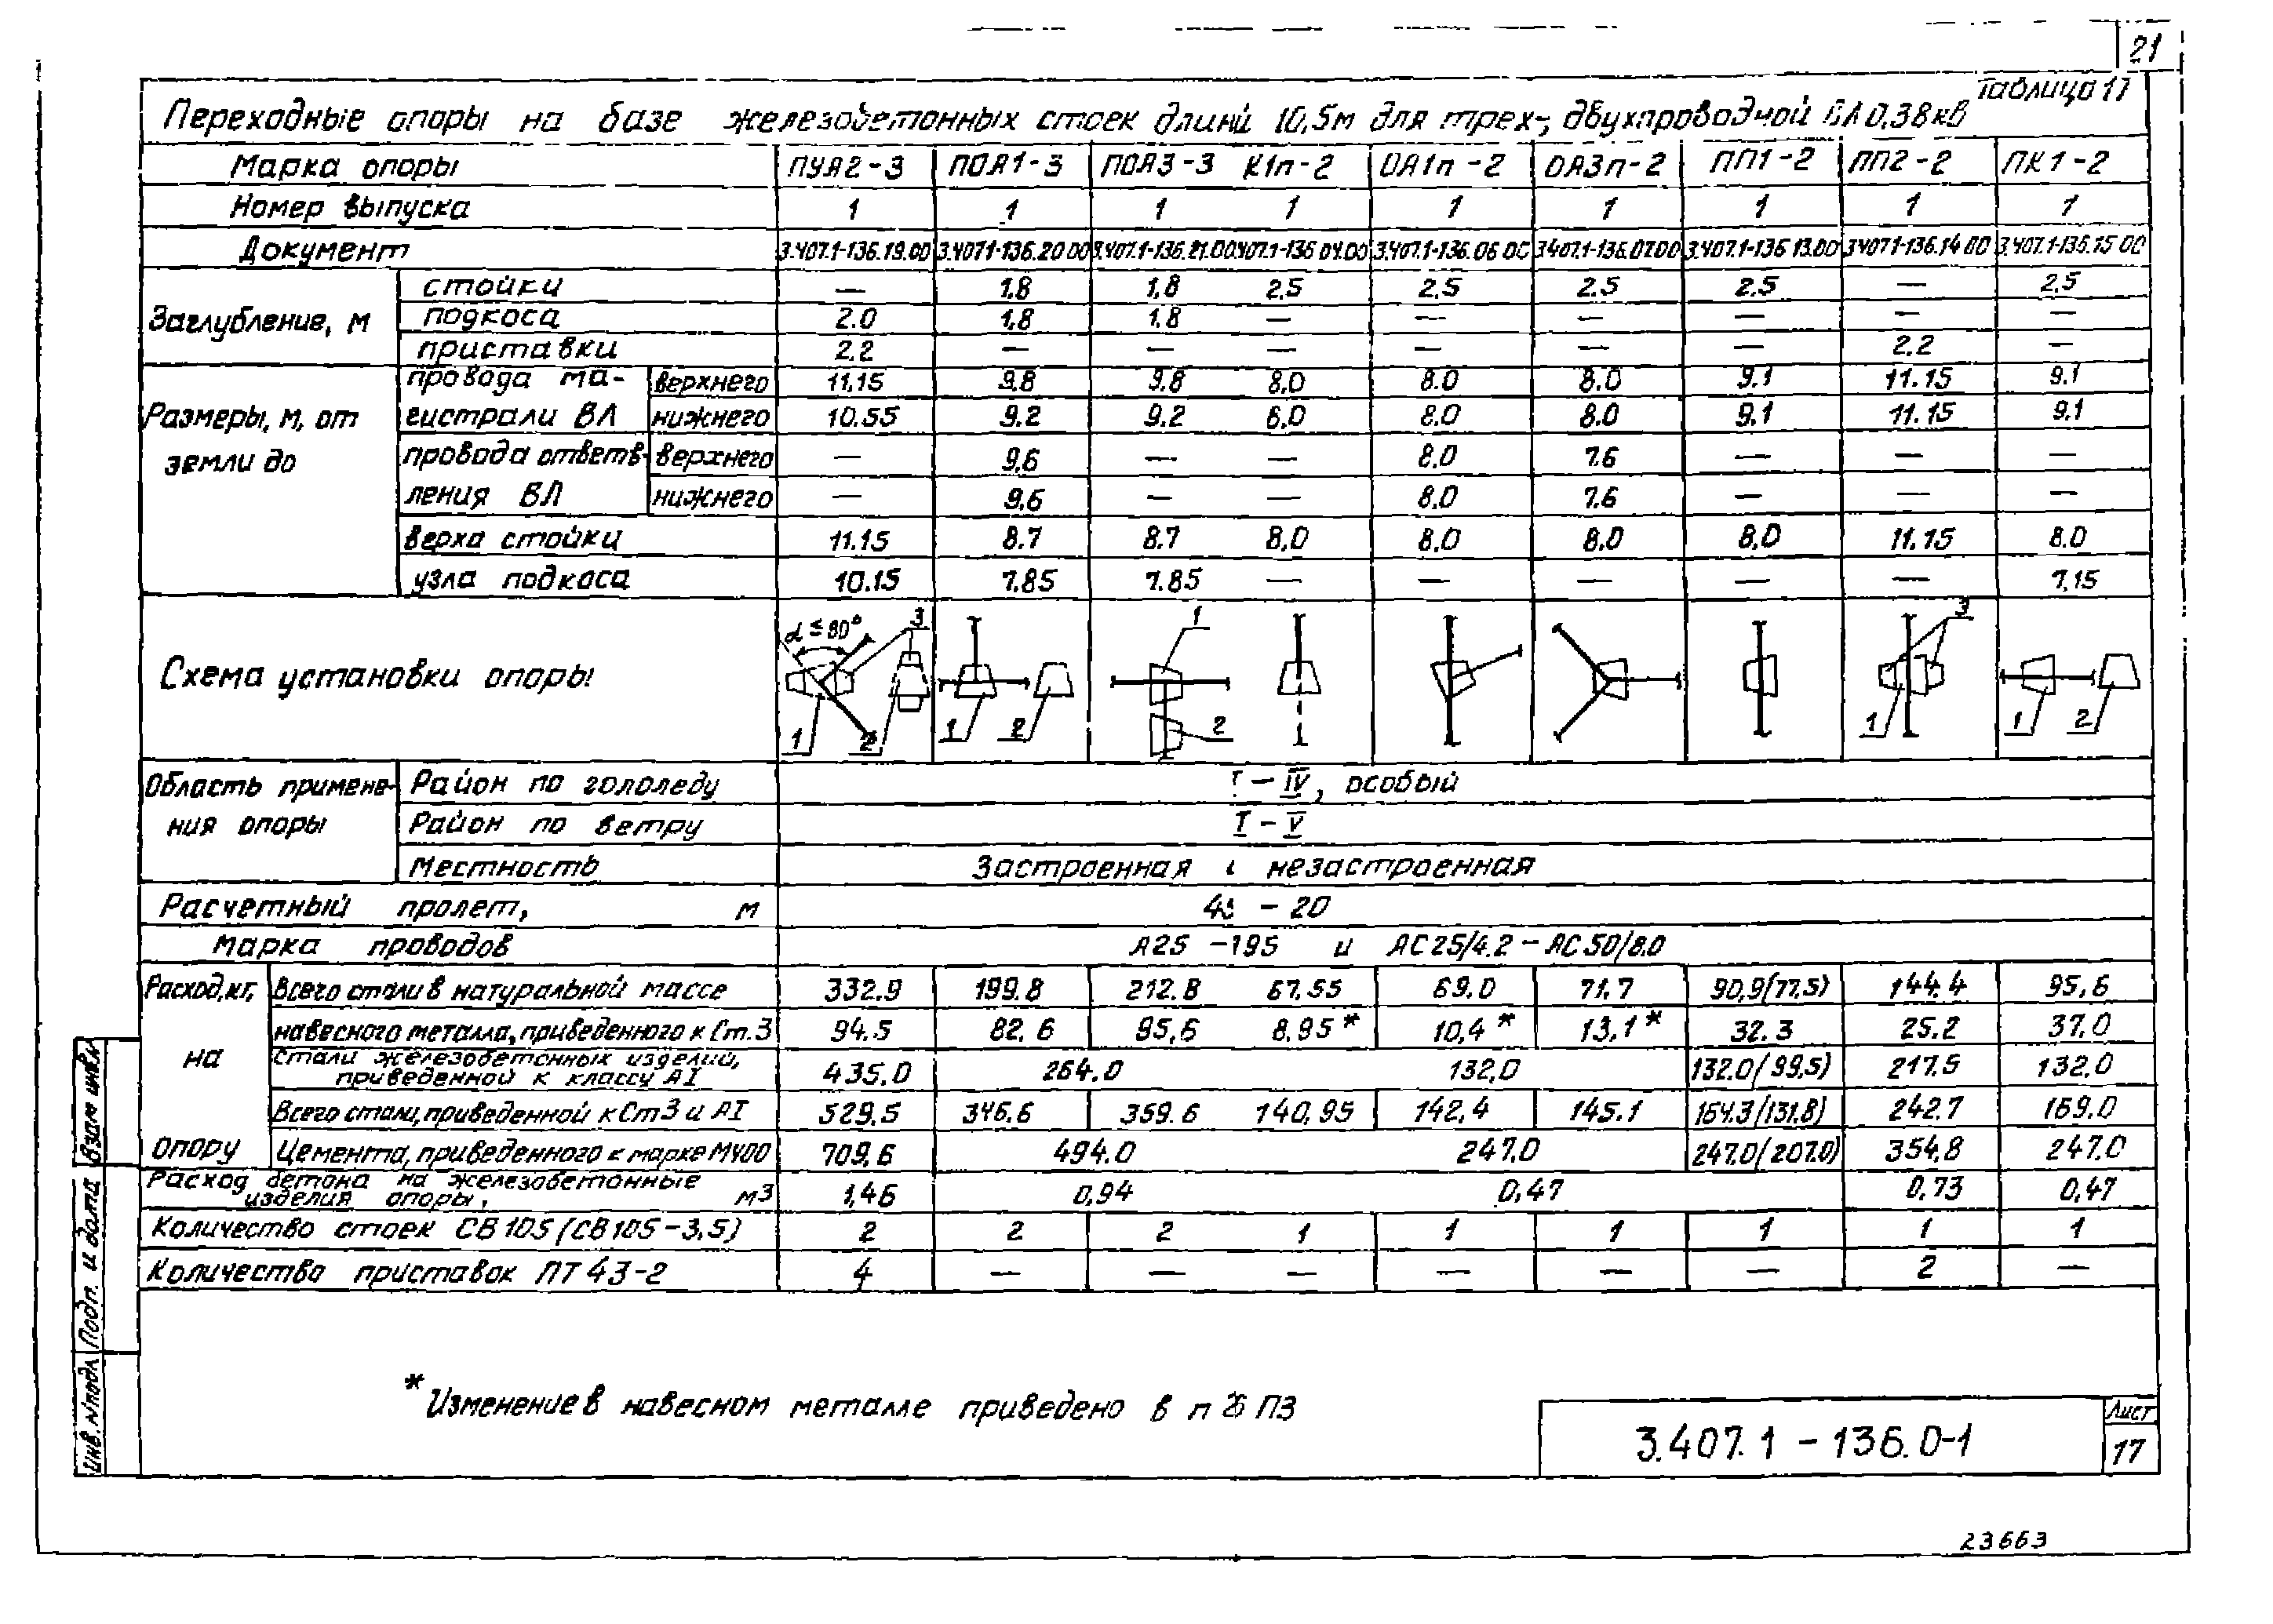 21
Таблица 17
Переходные опоры на базе железобетонных стоек длиной 10,5м для трех-, двухпроводной ВЛ 0,38кв
Марка опоры ПУА2-3 ПОА1-3 ПОА3-3 К1п-2 ОА1п-2 ОА3п-2 ПП1-2 ПП2-2 ПК1-2
Номер выпуска 1 1 1 1 1 1 1 1 1
Документ 3.407.1-136.19.00 3.407.1-136.20.00 3.407.1-136.21.00 3.407.1-136.04.00 3.407.1-136.06.00 3.407.1-136.07.00 3.407.1-136.13.00 3.407.1-136.14.00 3.407.1-136.15.00
Заглубление, м
стойки — 1,8 1,8 2,5 2,5 2.5 2.5 — 2.5
подкоса 2.0 1,8 1.8 — — — — — —
приставки 2.2 — — — — — — 2.2 —
Размеры, м, от земли до
провода магистрали ВЛ
верхнего 11.15 9.8 9.8 8.0 8.0 8.0 9.1 11.15 9.1
нижнего 10.55 9.2 9.2 6.0 8.0 8.0 9.1 11.15 9.1
провода ответвления ВЛ
верхнего — 9.6 — — 8.0 7.6 — — —
нижнего — 9.6 — — 8.0 7.6 — — —
верха стойки 11.15 8.7 8.7 8.0 8.0 8.0 8.0 11.15 8.0
узла подкоса 10.15 7.85 7.85 — — — — — 7.15
Схема установки опоры
α ≤ 90° 3 1 2
1 2
1 2
3 1
1 2
Область применения опоры
Район по гололеду I – IV, особый
Район по ветру I – V
Местность Застроенная и незастроенная
Расчетный пролет, м – 20
Марка проводов А25 -195 и АС25/4.2 – АС50/8.0
Расход, кг, на опору
Всего стали в натуральной массе 332.9 199.8 212.8 67.55 69.0 71.7 90,9(77,5) 144.4 95,6
навесного металла, приведенного к Ст.3 94.5 82.6 95,6 8.95* 10,4* 13,1* 32.3 25.2 37.0
Стали железобетонных изделий,
приведенной к классу АI 435.0 264.0 132,0 132.0/99,5) 217.5 132,0
Всего стали, приведенной к Ст3 и АI 529.5 346.6 359.6 140,95 142,4 145.1 164.3(131,8) 242.7 169.0
Цемента, приведенного к марке М400 709,6 494.0 247.0 247.0/207.0) 354,8 247.0
Расход бетона на железобетонные
изделия опоры, м3 1,46 0,94 0,47 0,73 0,47
Количество стоек СВ105 (СВ105-3,5) 2 2 2 1 1 1 1 1 1
Количество приставок ПТ43-2 4 — — — — — — 2 —
* Изменение в навесном металле приведено в п ПЗ
3.407.1-136.0-1
Лист
17
Взам инв
Подп. и дата
Инв. N подл
23663